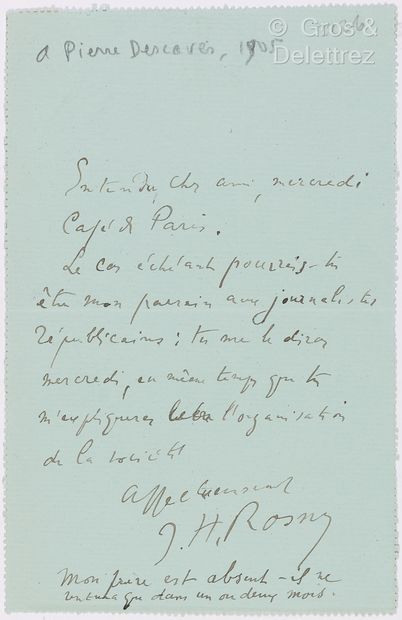 © Gros &
Delettrez
a Pierre Descaves, 1905
Entendu, cher ami, mercredi
Café de Paris.
Le cas échéant pourrais-tu
être mon parrain aux journalistes
républicains ; tu me le diras
mercredi, en même temps que tu
m'expliqueras l'organisation
de la société
Affectueusement
J. H. Rosny
Mon frère est absent - il ne
rentrera que dans un ou deux mois.